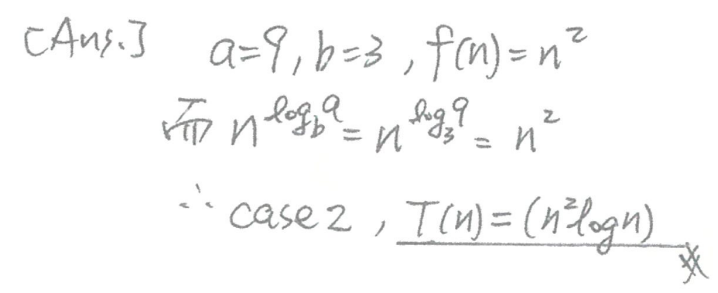 [Ans.] a=9, b=3, f(n)=n²
而 n^log_b a = n^log_3 9 = n²
∴ case 2, T(n)=(n²logn)